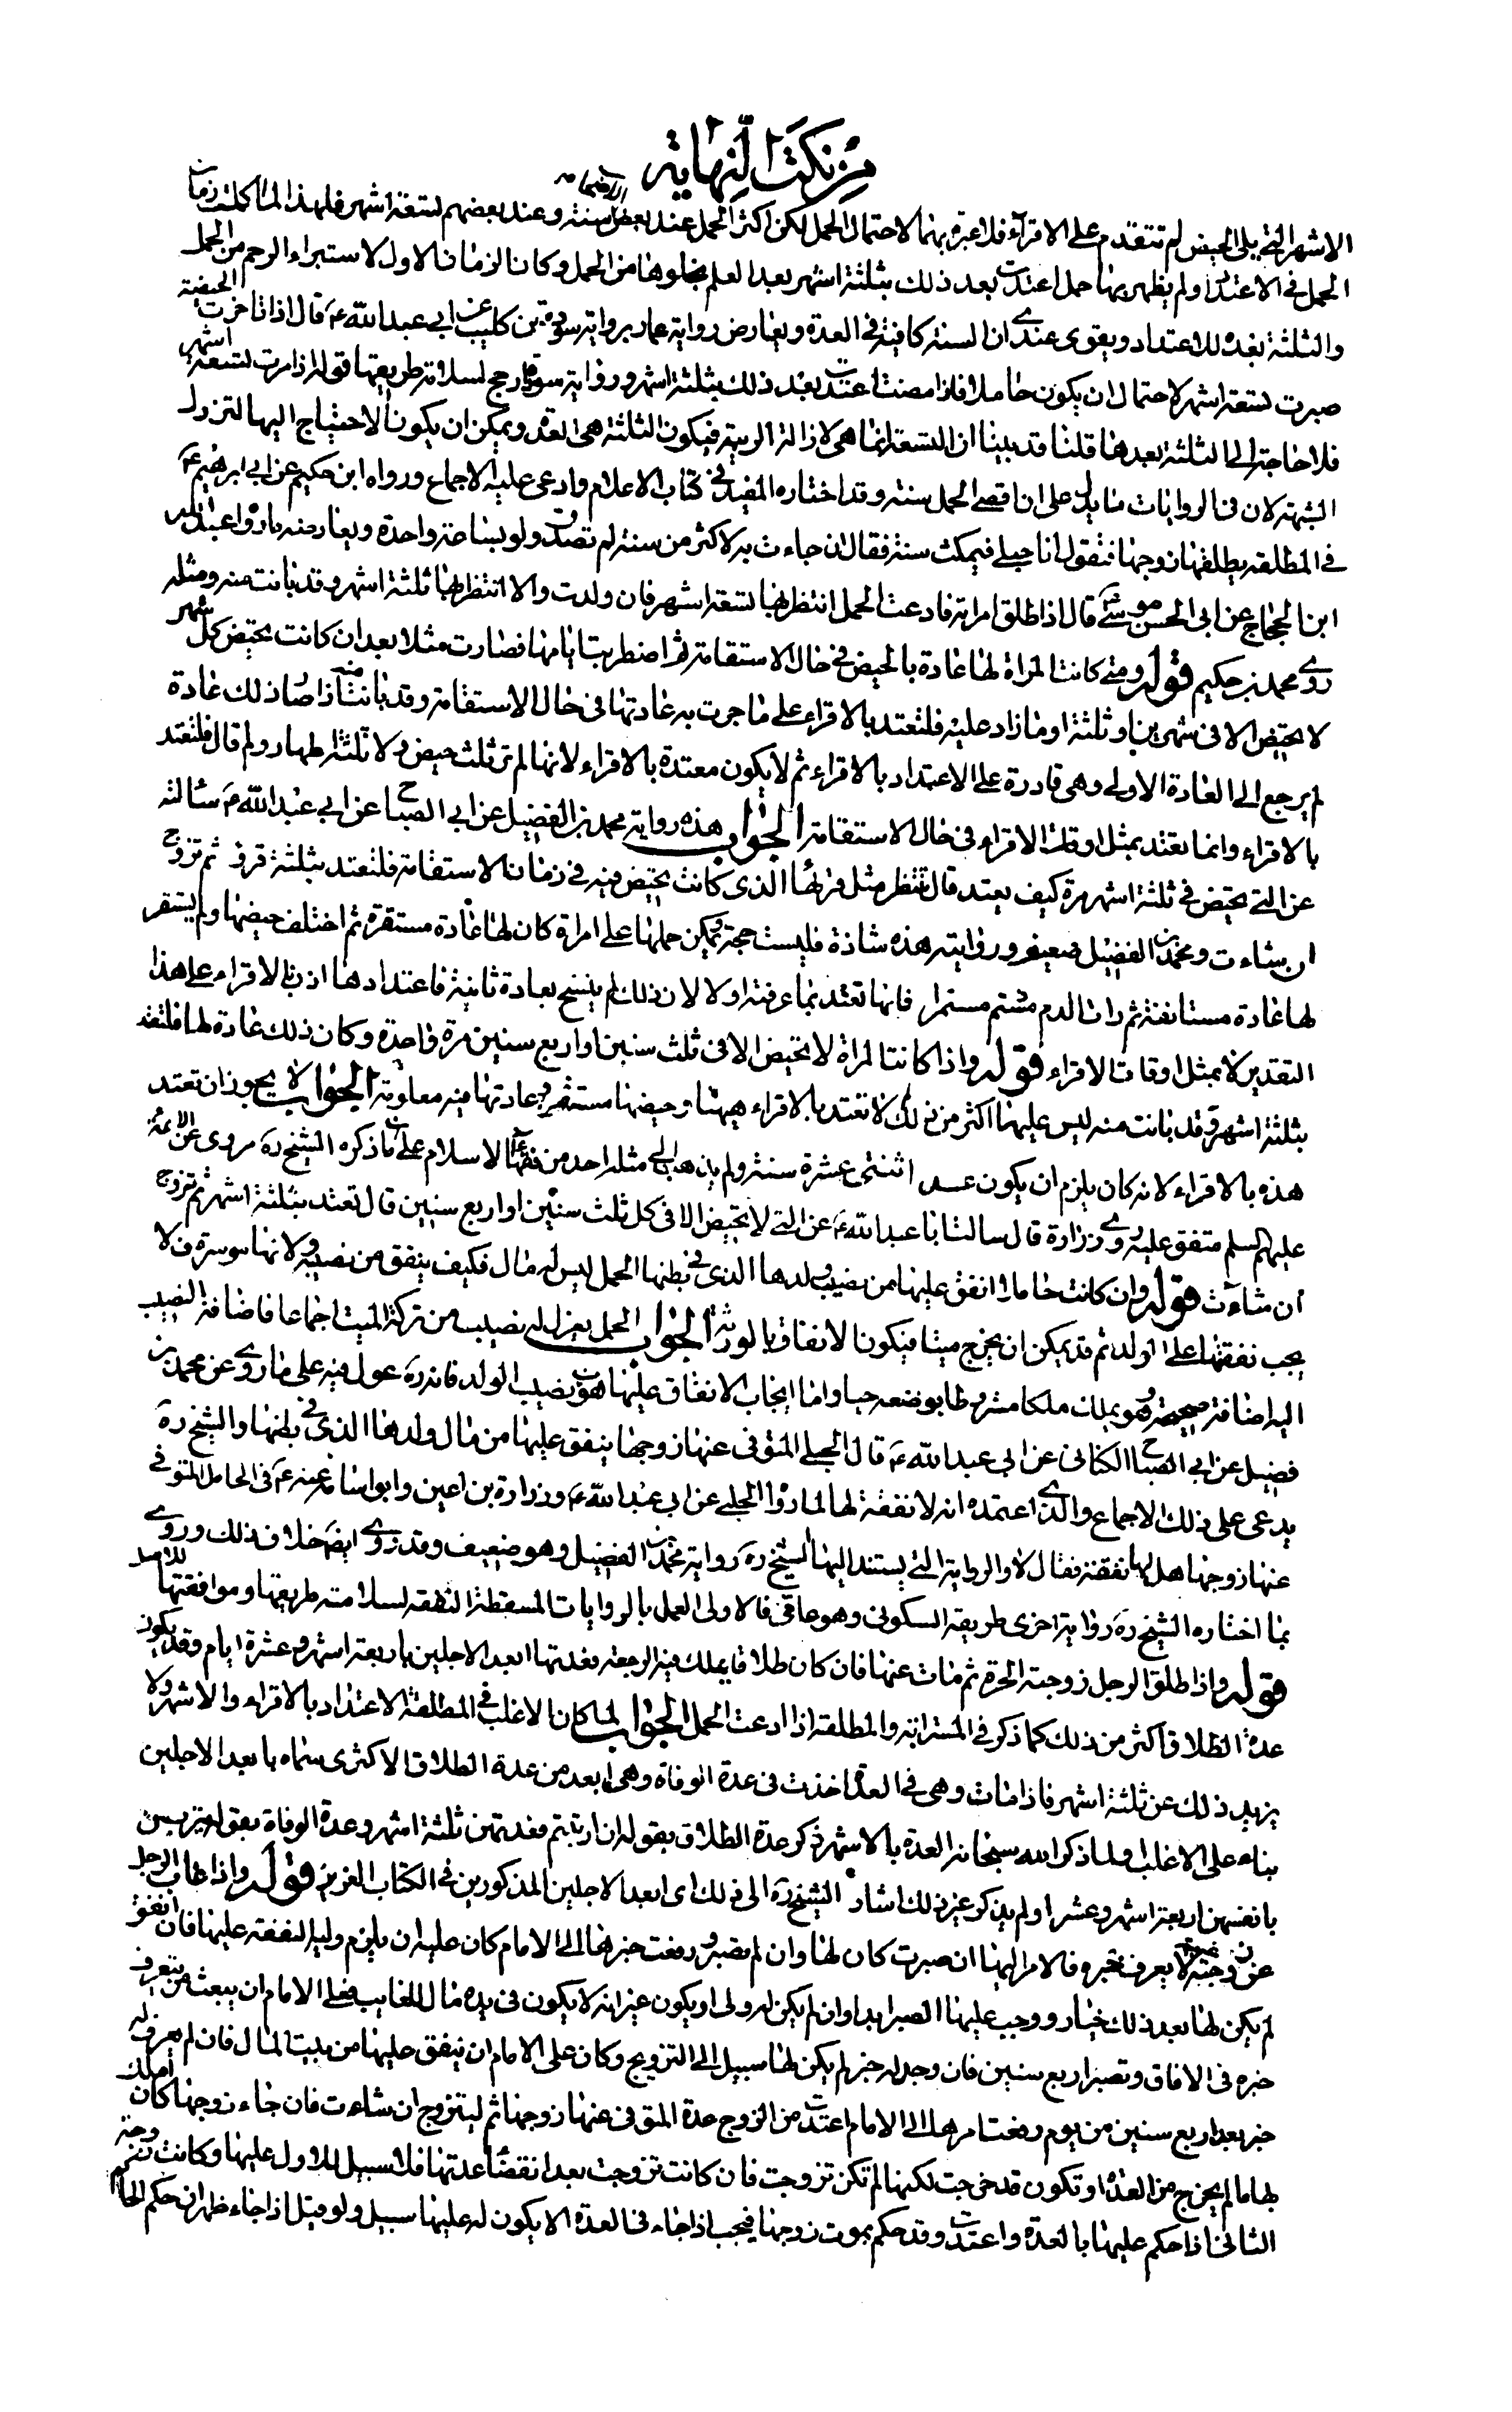 من نكت النهاية
الاشهر التي يلي الحيض لم تتقدم على الاقراء فلا عبرة بهما لاحتمال الحمل لكن اكثر الحمل عند بعض الاصحاب سنة وعند بعضهم تسعة اشهر فلهذا لما كملت زمان
الحمل في الاعتداد ولم يظهر بها حمل اعتدت بعد ذلك بثلثة اشهر بعد العلم بخلوها من الحمل وكان الزمان الاول لاستبراء الرحم من الحمل
والثلثة بعده للاعتداد ويقوى عندي ان السنة كافية في العدة ويعارض رواية عمار برواية سورة بن كليب عن ابي عبد الله ع قال اذا تاخرت الحيضة
صبرت تسعة اشهر لاحتمال ان يكون حاملا فاذا مضت اعتدت بعد ذلك بثلثة اشهر ورواية سورة ارجح لسلامة طريقها قوله اذا مرت تسعة اشهر
فلا حاجة الى الثلثة بعدها قلنا قد بينا ان التسعة انما هي لازالة الريبة فيكون الثلثة هي العدة ويمكن ان يكون الاحتياج اليها لتزول
الشبهة لان في الروايات ما يدل على ان اقصى الحمل سنة وقد اختاره المفيد في كتاب الاعلام وادعى عليه الاجماع ورواه ابن حكيم عن ابي ابرهيم ع
في المطلقة يطلقها زوجها فتقول انا حبلى فيمكث سنة فقال ان جاءت به لاكثر من سنة لم تصدق ولو بساعة واحدة ويعارضه ما رواه عبد الرحمن
ابن الحجاج عن ابي الحسن موسى ع قال اذا طلق امراته فادعت الحمل انتظر بها تسعة اشهر فان ولدت والا انتظر بها ثلثة اشهر وقد بانت منه ومثله
روى محمد بن حكيم قوله ومتى كانت المراة لها عادة بالحيض في حال الاستقامة ثم اضطربت ايامها فصارت مثلا بعد ان كانت تحيض كل شهر
لا تحيض الا في شهرين او ثلثة او ما زاد عليه فلتعتد بالاقراء على ما جرت به عادتها في حال الاستقامة وقد بانت منه اذا صار ذلك عادة
لم يرجع الى العادة الاولى وهي قادرة على الاعتداد بالاقراء ثم لا يكون معتدة بالاقراء لانها لم تر ثلث حيض ولا ثلثة اطهار ولم قال فلتعتد
بالاقراء وانما تعتد بمثل اوقات الاقراء في حال الاستقامة الجواب هذه رواية محمد بن الفضيل عن ابي الصباح عن ابي عبد الله ع سالته
عن التي تحيض في ثلثة اشهر مرة كيف يعتد قال تنتظر مثل قرئها الذي كانت تحيض فيه في زمان الاستقامة فلتعتد بثلثة قروء ثم تزوج
ان شاءت ومحمد بن الفضيل ضعيف وروايته هذه شاذة فليست حجة ويمكن حملها على امراة كان لها عادة مستقرة ثم اختلف حيضها ولم يستقر
لها عادة مستانفة ثم رات الدم مستمرا فانها تعتد بما عرفته اولا لان ذلك لم ينسخ بعادة ثانية فاعتدادها اذن بالاقراء على هذا
التقدير لا بمثل اوقات الاقراء قوله واذا كانت المراة لا تحيض الا في ثلث سنين او اربع سنين مرة واحدة وكان ذلك عادة لها فلتعتد
بثلثة اشهر وقد بانت منه ليس عليها اكثر من ذلك لم لا تعتد بالاقراء هيهنا وحيضها مستقر وعادتها فيه معلومة الجواب لا يجوز ان تعتد
هذه بالاقراء لانه كان يلزم ان يكون اثنتى عشرة سنة ولم يذهب الى مثله احد من فقهاء الاسلام على ان ما ذكره الشيخ ره مروى عن الائمة
عليهم السلم متفق عليه روى زرارة قال سالت ابا عبد الله ع عن التي لا تحيض الا في كل ثلث سنين او اربع سنين قال تعتد بثلثة اشهر ثم تزوج
ان شاءت قوله وان كانت حاملا انفق عليها من نصيب ولدها الذي في بطنها الحمل ليس له مال فكيف ينفق من نصيبه ولانها موسرة فلا
يجب نفقتها على الولد ثم قد يمكن ان يخرج ميتا فيكون الانفاق بالورثة الجواب الحمل يعزل له نصيب من تركة الميت اجماعا فاضافة النصيب
اليه اضافة صحيحة وهو يملك ملكا مشروطا بوضعه حيا واما ايجاب الانفاق عليها من نصيب الولد فانه ره عول فيه على ما روى عن محمد بن
فضيل عن ابي الصباح الكناني عن ابي عبد الله ع قال الحبلى المتوفى عنها زوجها ينفق عليها من مال ولدها الذي في بطنها والشيخ ره
يدعى على ذلك الاجماع والذي اعتمده انه لا نفقة لها لما رواه الحلبي عن ابي عبد الله ع وزرارة بن اعين وابو اسامة عنه ع في الحامل المتوفى
عنها زوجها هل لها نفقة فقال لا والرواية التي يستند اليها الشيخ ره رواية محمد بن الفضيل وهو ضعيف وقد روى ايضا خلاف ذلك وروى
بما اختاره الشيخ ره رواية اخرى طريقها السكوني وهو عامى فالاولى العمل بالروايات المسقطة النفقة لسلامة طريقها وموافقتها للاصل
قوله واذا طلق الرجل زوجته الحرة ثم مات عنها فان كان طلاقا يملك فيه الرجعة فعدتها ابعد الاجلين باربعة اشهر وعشرة ايام وقد يكون
عدة الطلاق اكثر من ذلك كما ذكر في المسترابة والمطلقة اذا ادعت الحمل الجواب لما كان الاغلب في المطلقة الاعتداد بالاقراء والاشهر ولا
يزيد ذلك عن ثلثة اشهر فاذا مات وهي في العدة اخذت في عدة الوفاة وهي ابعد من عدة الطلاق الاكثرى سماه بابعد الاجلين
بناء على الاغلب ولما ذكر الله سبحانه العدة بالاشهر ذكر عدة الطلاق بقوله ان ارتبتم فعدتهن ثلثة اشهر وعدة الوفاة بقوله يتربصن
بانفسهن اربعة اشهر وعشرا ولم يذكر غير ذلك اشار الشيخ ره الى ذلك اى ابعد الاجلين المذكورين في الكتاب العزيز قوله واذا غاب الرجل
عن زوجته غيبة لا يعرف خبره فالامر اليها ان صبرت كان لها وان لم تصبر ورفعت خبرها الى الامام كان عليه ان يلزم وليه النفقة عليها فان انفق
لم يكن لها بعد ذلك خيار ووجب عليها الصبر ابدا وان لم يكن له ولى او يكون غير انه لا يكون في يده مال للغايب فعلى الامام ان يبعث من يتعرف
خبره في الافاق وتصبر اربع سنين فان وجد له خبر لم يكن لها سبيل الى التزويج وكان على الامام ان ينفق عليها من بيت المال فان لم يعرف له
خبر بعد اربع سنين من يوم رفعت امرها الى الامام اعتدت من الزوج عدة المتوفى عنها زوجها ثم ليتزوج ان شاءت فان جاء زوجها كان املك
بها ما لم يخرج من العدة او تكون قد خرجت لكنها لم تكن تزوجت فان كانت تزوجت بعد انقضاء عدتها فلا سبيل للاول عليها وكانت زوجة
الثاني اذا حكم عليها بالعدة واعتدت وقد حكم بموت زوجها فيجب اذا جاء في العدة الا يكون له عليها سبيل ولو قيل اذا جاء ظهر ان حكم الحاكم